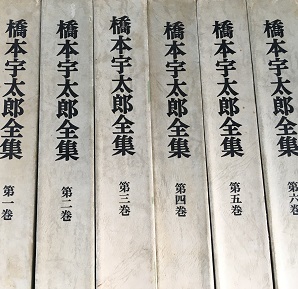 橋本宇太郎全集
第一巻
橋本宇太郎全集
第二巻
橋本宇太郎全集
第三巻
橋本宇太郎全集
第四巻
橋本宇太郎全集
第五巻
橋本宇太郎全集
第六巻